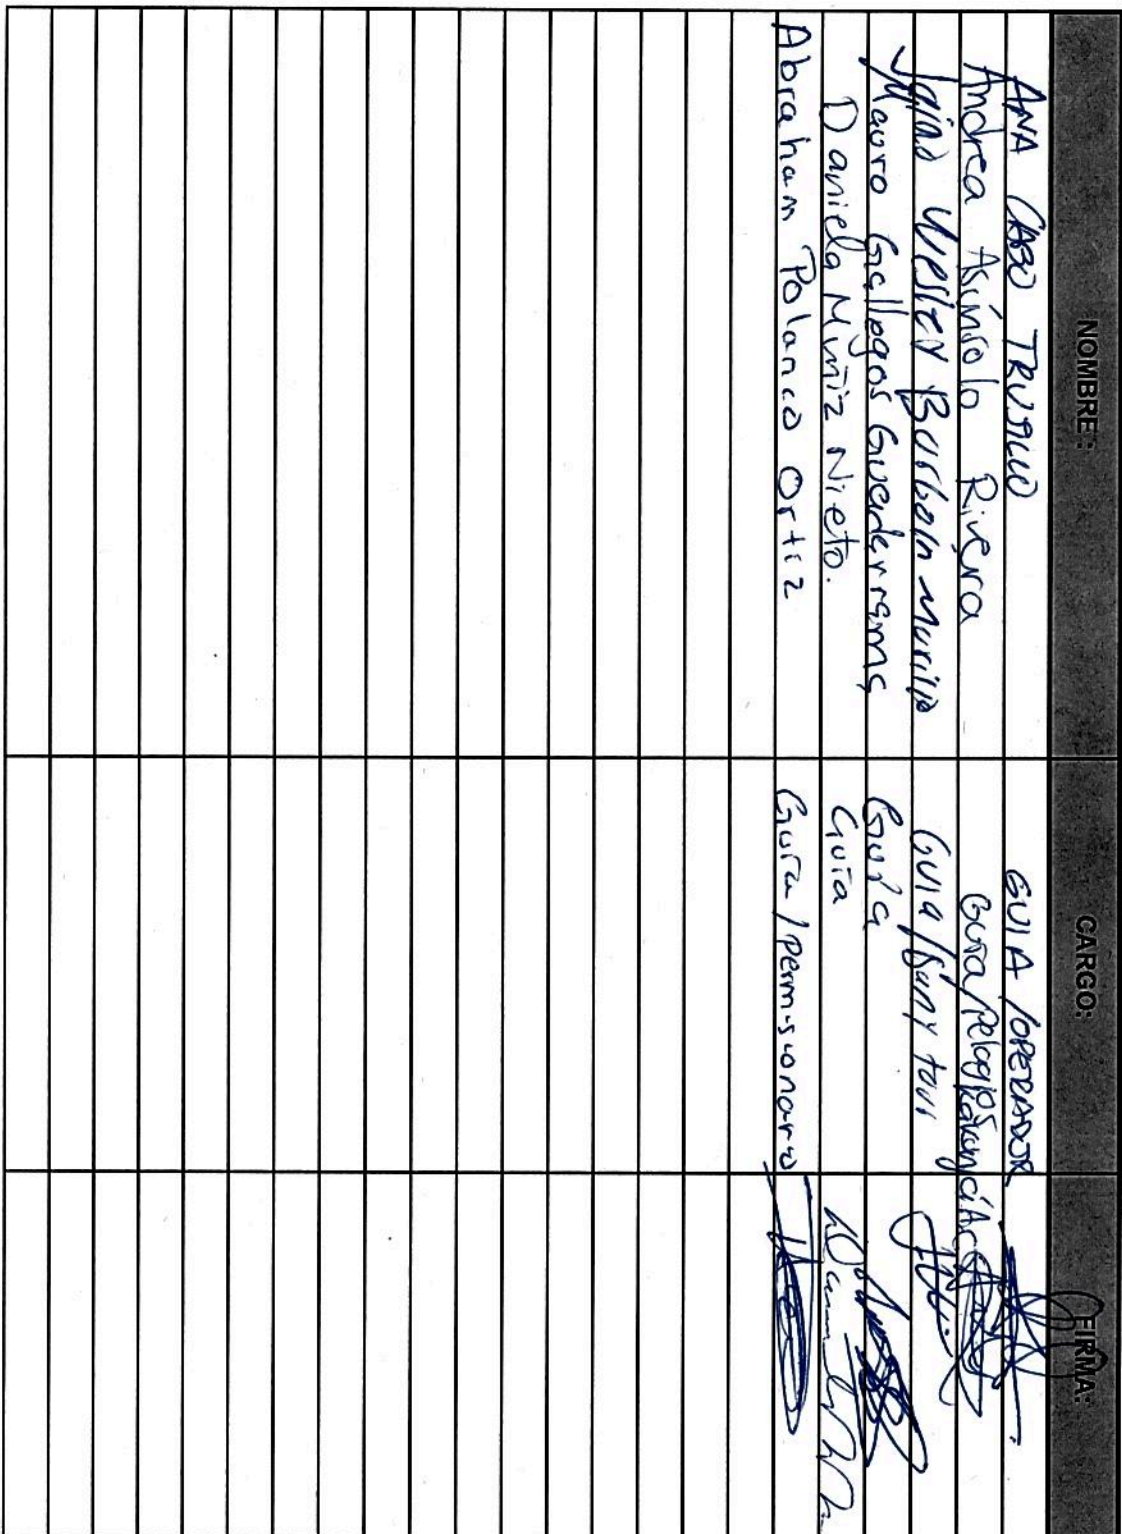 NOMBRE: CARGO: FIRMA:
ANA CABO TRUJILLO GUIA /OPERADOR
Andrea Asúnsolo Rivera Guía/Pelagios
Wesley Burboin Murillo GUIA/ tour
Mauro Gallegos Guaderrama Guía
Daniela Muñiz Nieto. Guía
Abraham Polanco Ortiz Guía/permisionario